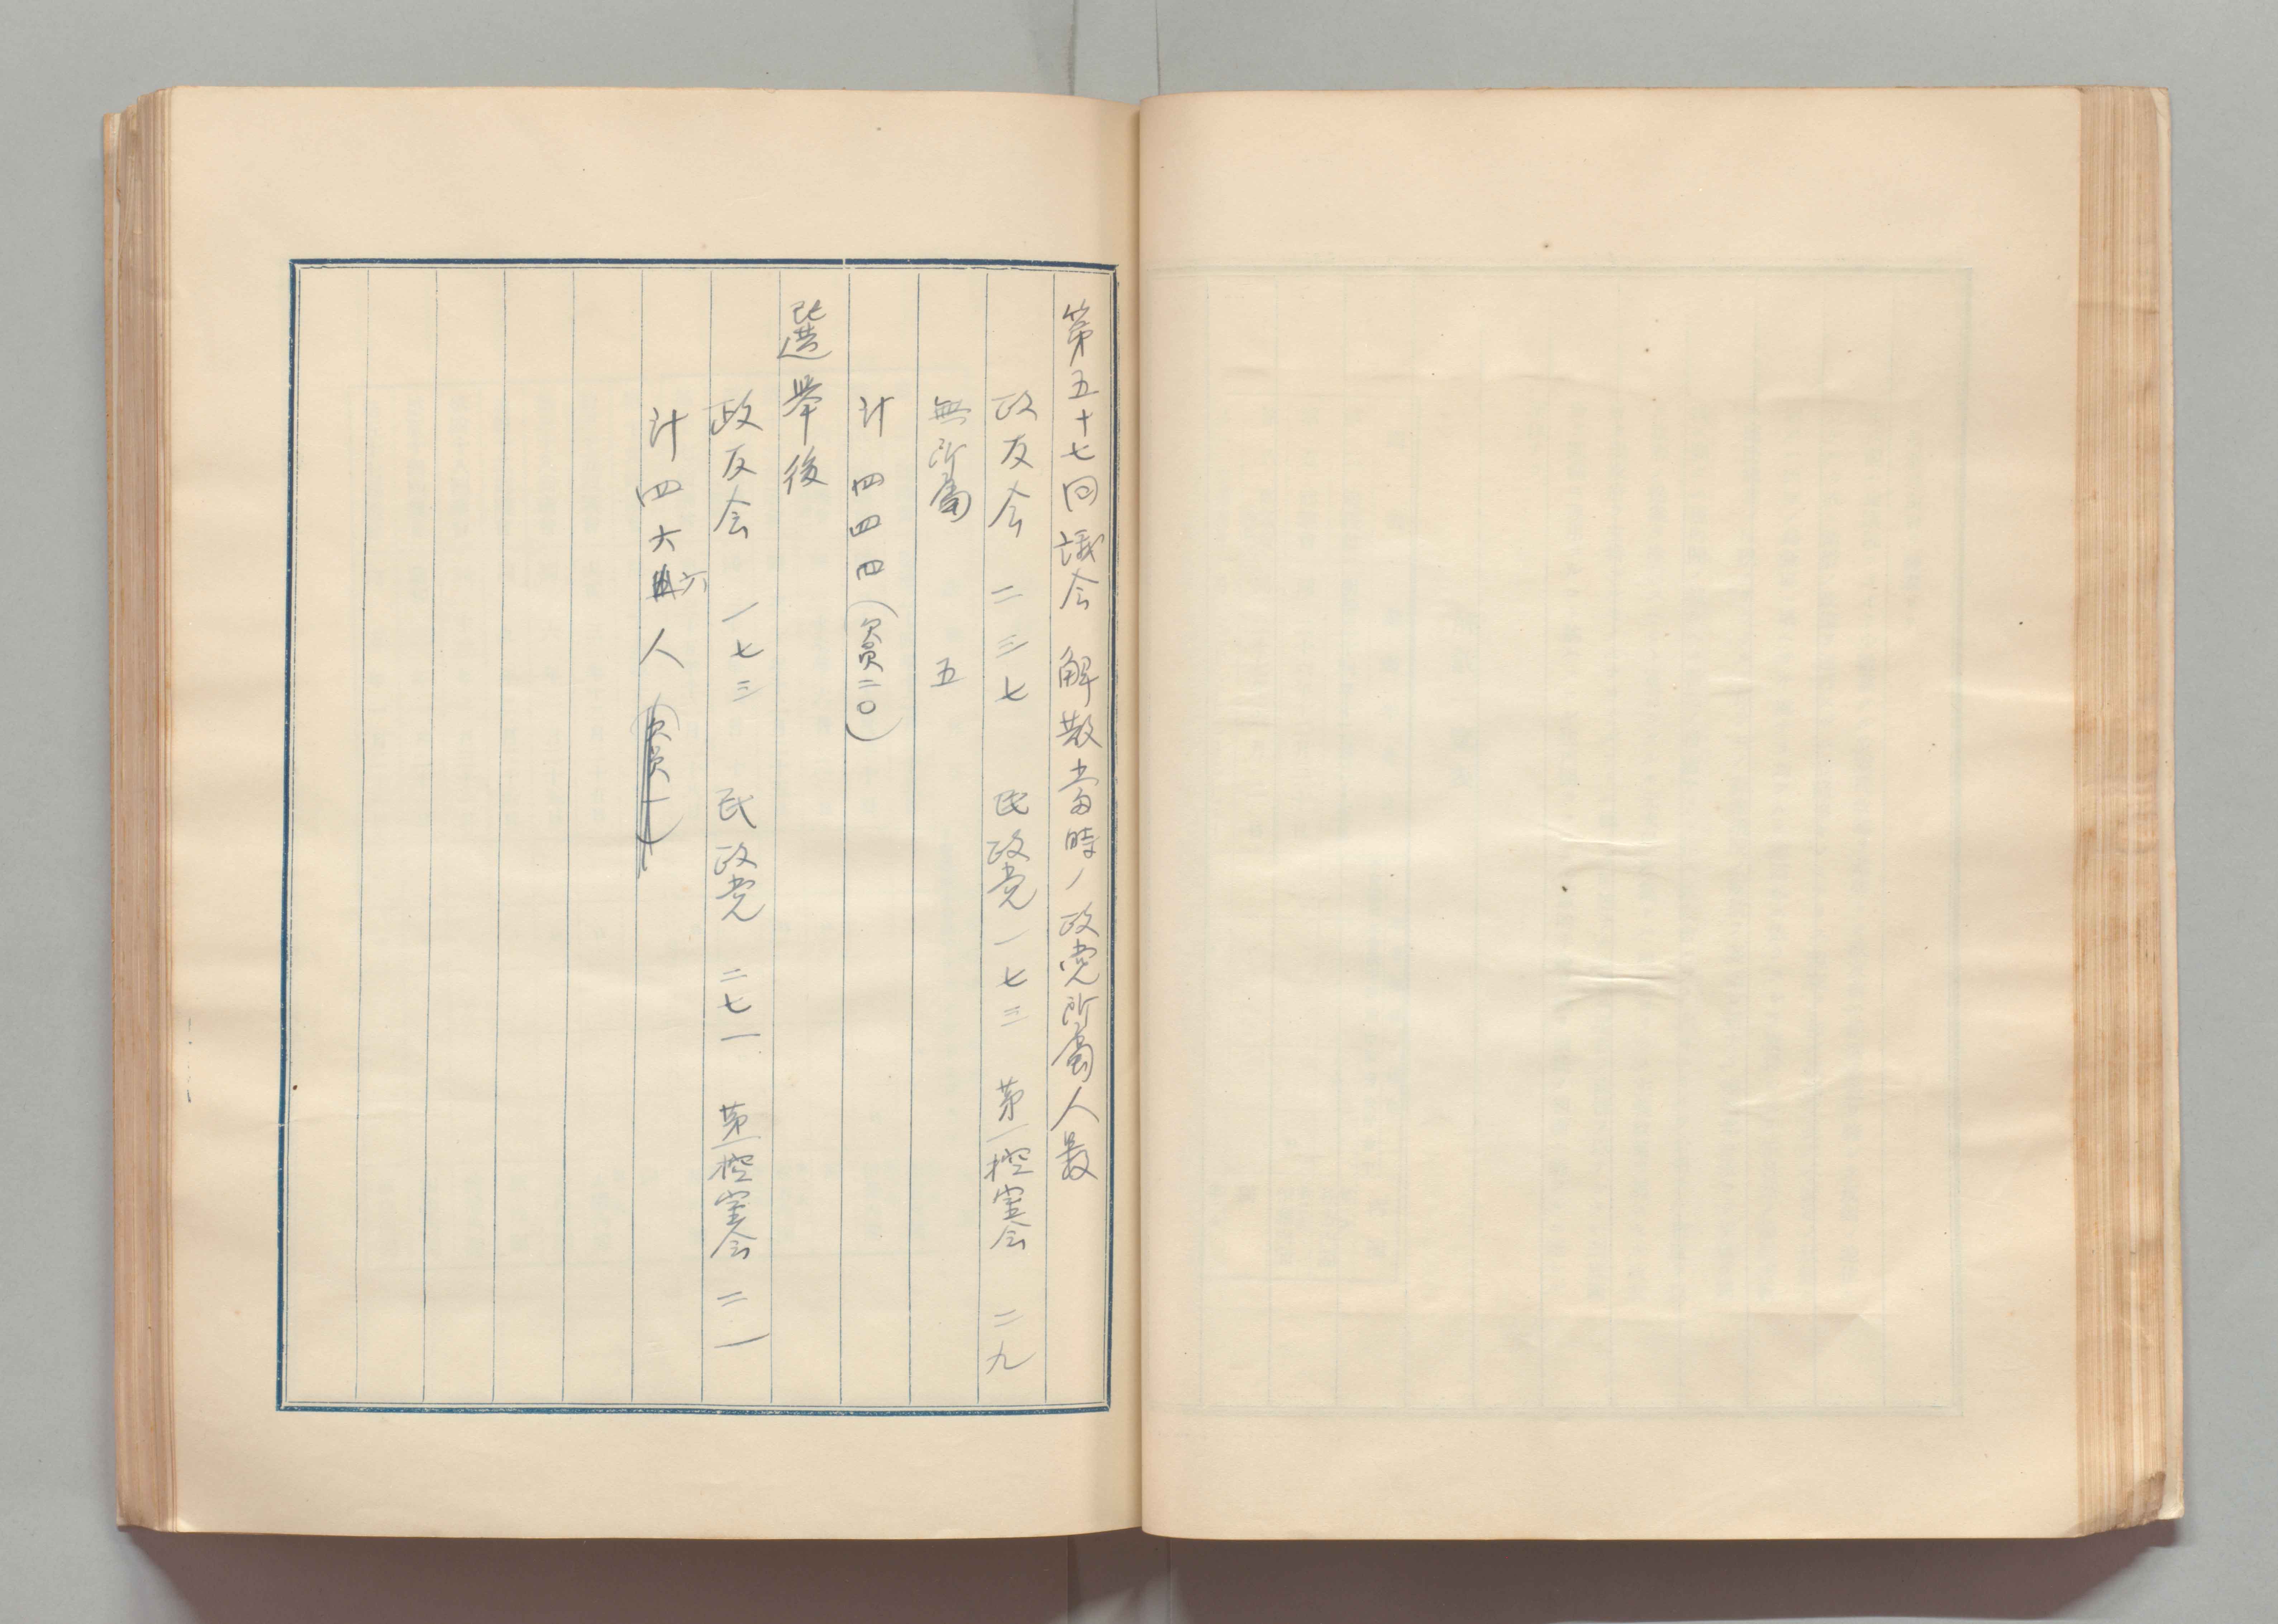 第五十七回議会　解散当時ノ政党所属人数
政友会　二三七　民政党　一七三　第一控室会　二九
無所属　五
計　四四四（欠員二〇）
選挙後
政友会　一七三　民政党　二七一　第一控室会　二一
計四六六人（欠員一）